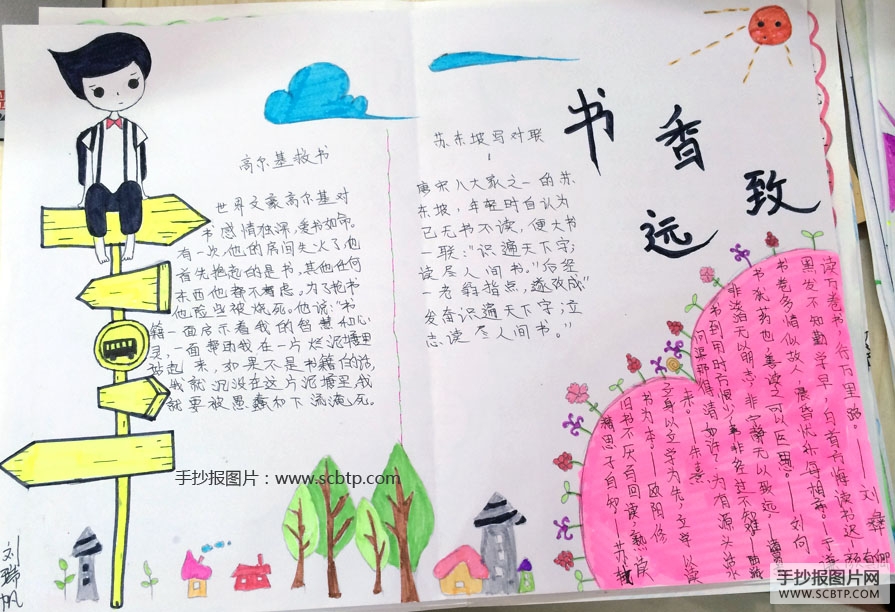 书香致远
高尔基救书
世界文豪高尔基对
书感情独深,爱书如命。
有一次,他的房间失火了,他
首先抱起的是书,其他任何
东西他都不考虑。为了抢书
他险些被烧死。他说:“书
籍一面启示着我的智慧和心
灵,一面帮助我在一片烂泥塘里
站起来,如果不是书籍的话,
我就沉没在这片泥塘里,我
就要被愚蠢和下流淹死。
苏东坡写对联
唐宋八大家之一的苏
东坡,年轻时自认为
已无书不读,便大书
一联:“识遍天下字;
读尽人间书。”后经
一老翁指点,遂改成“
发奋识遍天下字;立
志读尽人间书。”
读万卷书,行万里路。——刘彝
黑发不知勤学早,白首方悔读书迟。
书卷多情似故人,晨昏忧乐每相亲。——于谦
书犹药也,善读之可以医愚。——刘向
非淡泊无以明志,非宁静无以致远。
书到用时方恨少,事非经过不知难。
问渠那得清如许?为有源头活水
来。——朱熹
立身以立学为先,立学以读
书为本。——欧阳修
旧书不厌百回读,熟读
精思子自知——苏轼
刘瑞帆
手抄报图片:www.scbtp.com
手抄报图片网
WWW.SCBTP.COM